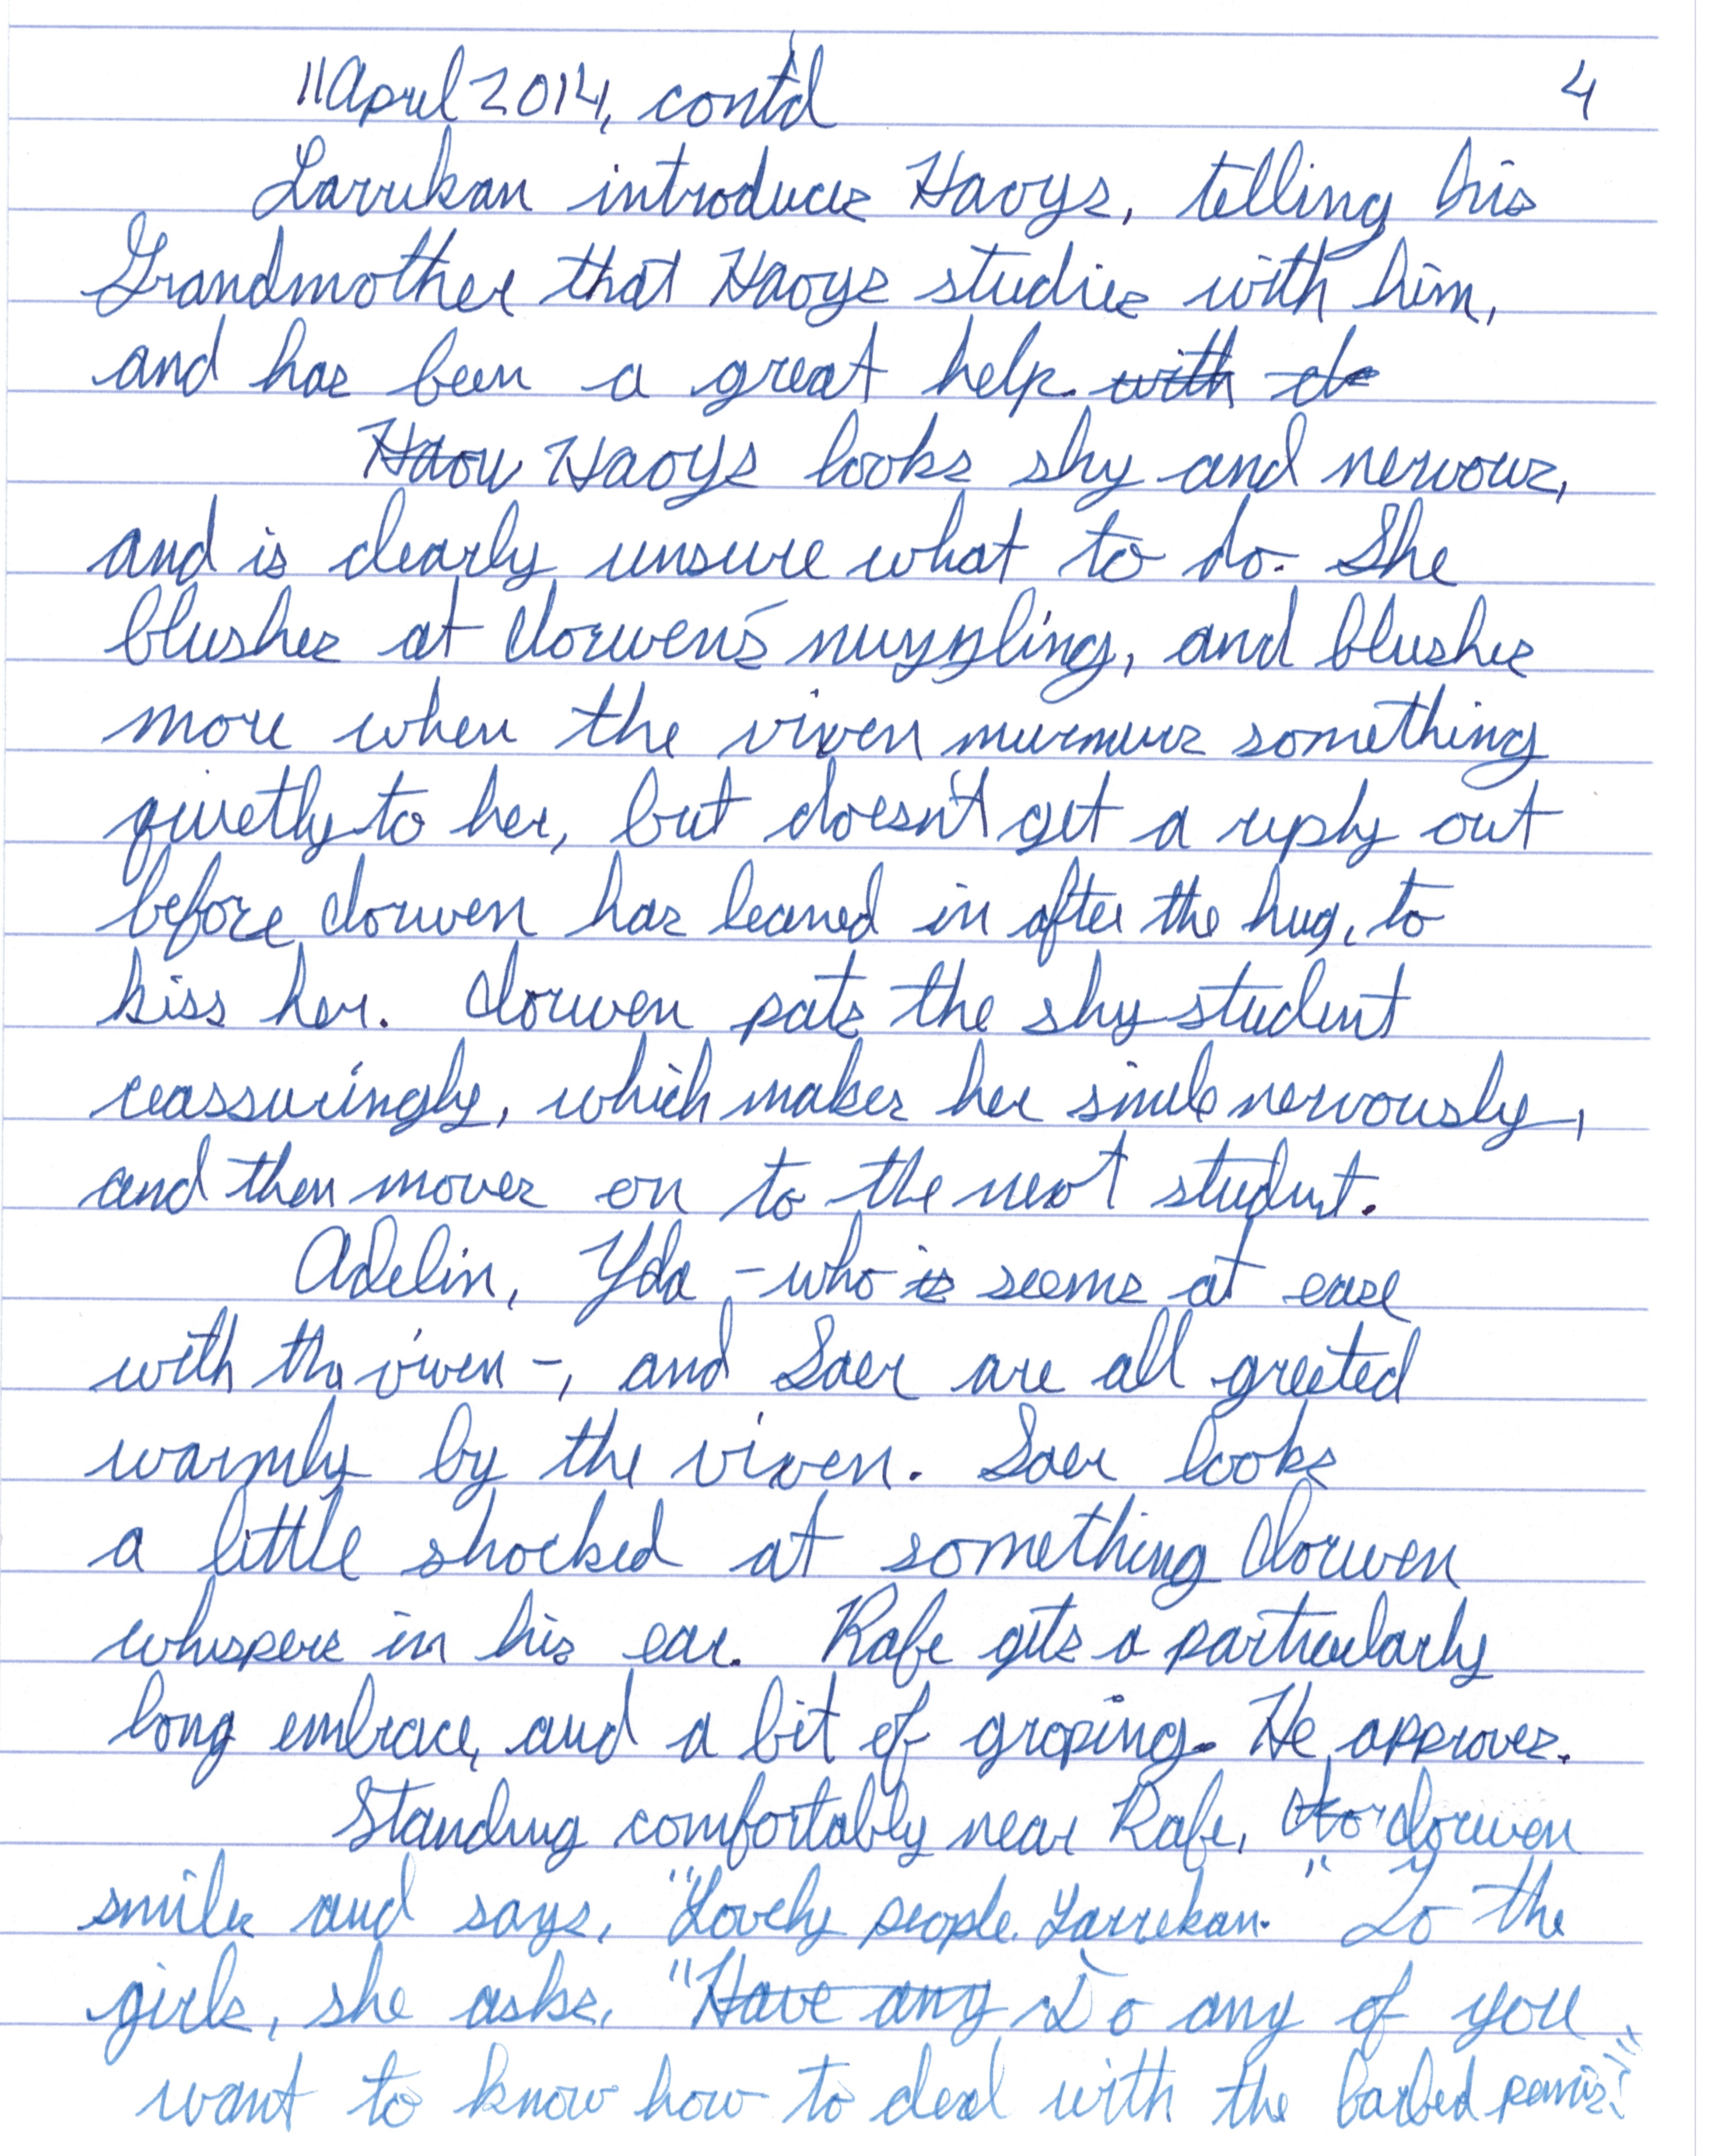 11 April 2014, cont'd 4
Larrekan introduces Haoys, telling his
Grandmother that Haoys studies with him,
and has been a great help. with de
Haou Haoys looks shy and nervous,
and is clearly unsure what to do. She
blushes at Clorwen's nuzzling, and blushes
more when the vixen murmurs something
quietly to her, but doesn't get a reply out
before Clorwen has leaned in after the hug, to
kiss her. Clorwen pats the shy student
reassuringly, which makes her smile nervously,
and then moves on to the next student.
Adelin, Yda - who is seems at ease
with the vixen -, and Saer are all greeted
warmly by the vixen. Saer looks
a little shocked at something Clorwen
whispers in his ear. Rafe gets a particularly
long embrace, and a bit of groping. He approves.
Standing comfortably near Rafe, Clorwen
smiles and says, "Lovely people, Larrekan." To the
girls, she asks, "Have any Do any of you
want to know how to deal with the barbed penis?"